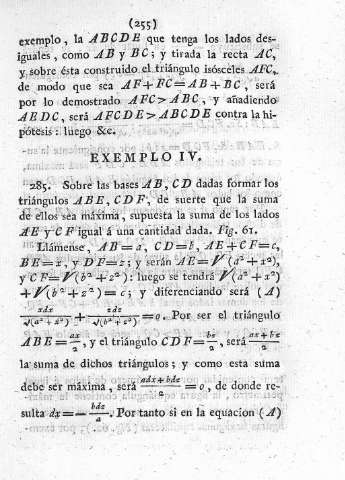 (255)
exemplo, la ABCDE que tenga los lados des-
iguales, como AB y BC; y tirada la recta AC,
y sobre ésta construido el triángulo isósceles AFC,
de modo que sea AF+FC=AB+BC, será
por lo demostrado AFC>ABC, y añadiendo
AEDC, será AFCDE>ABCDE contra la hi-
pótesis: luego &c.
EXEMPLO IV.
285. Sobre las bases AB, CD dadas formar los
triángulos ABE, CDF, de suerte que la suma
de ellos sea máxima, supuesta la suma de los lados
AE y CF igual á una cantidad dada. Fig. 61.
Llámense, AB=a, CD=b, AE+CF=c,
BE=x, y DF=z; y serán AE=√(a²+x²),
y CF=√(b²+z²): luego se tendrá √(a²+x²)
+√(b²+z²)=c; y diferenciando será (A)
xdx/√(a²+x²) + zdz/√(b²+z²) =0. Por ser el triángulo
ABE=ax/2, y el triángulo CDF=bz/2, será ax+bz/2
la suma de dichos triángulos; y como esta suma
debe ser máxima, será adx+bdz/2 =0, de donde re-
sulta dx=-bdz/a. Por tanto si en la equacion (A)